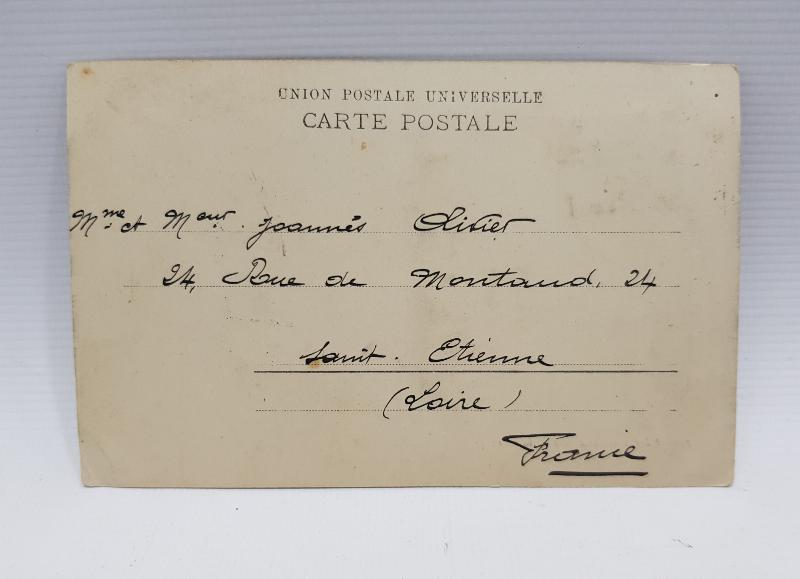 UNION POSTALE UNIVERSELLE
CARTE POSTALE
Mme et Meur. Joannès Olivier
24, Rue de Montaud, 24
Saint. Etienne
(Loire)
France